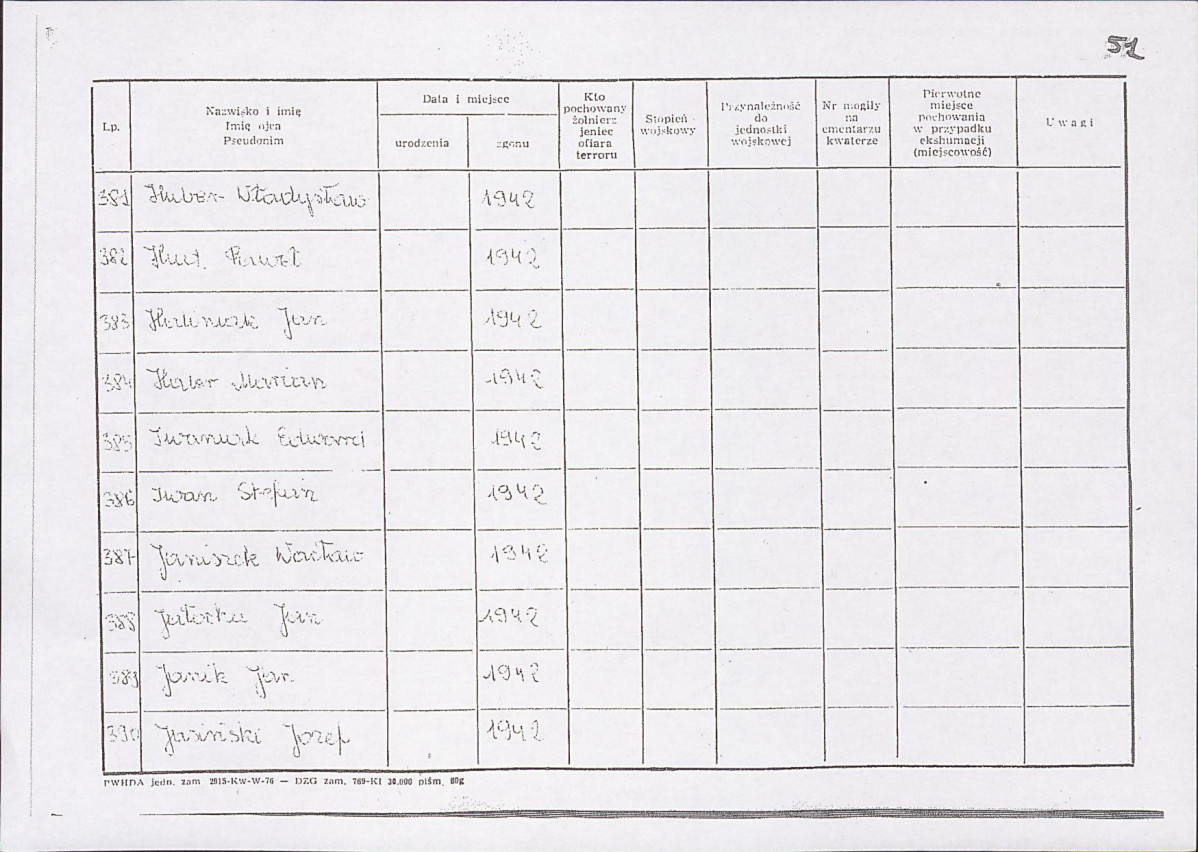 51
Lp.
Nazwisko i imię
Imię ojca
Pseudonim
Data i miejsce
urodzenia
zgonu
Kto
pochowany
żołnierz
jeniec
ofiara
terroru
Stopień
wojskowy
Przynależność
do
jednostki
wojskowej
Nr mogiły
na
cmentarzu
kwaterze
Pierwotne
miejsce
pochowania
w przypadku
ekshumacji
(miejscowość)
Uwagi
381 Huber Władysław 1942
382 Paweł 1942
383 Jan 1942
384 Marian 1942
385 Iwaniuk Edward 1942
386 Iwan Stefan 1942
387 Janiszek Wacław 1942
388 Jan 1942
389 Janik Jan 1942
390 Jasiński Józef 1942
PWHDA jedn. zam 2915-Kw-W-76 — DZG zam. 769-KI 30.000 piśm. 80g